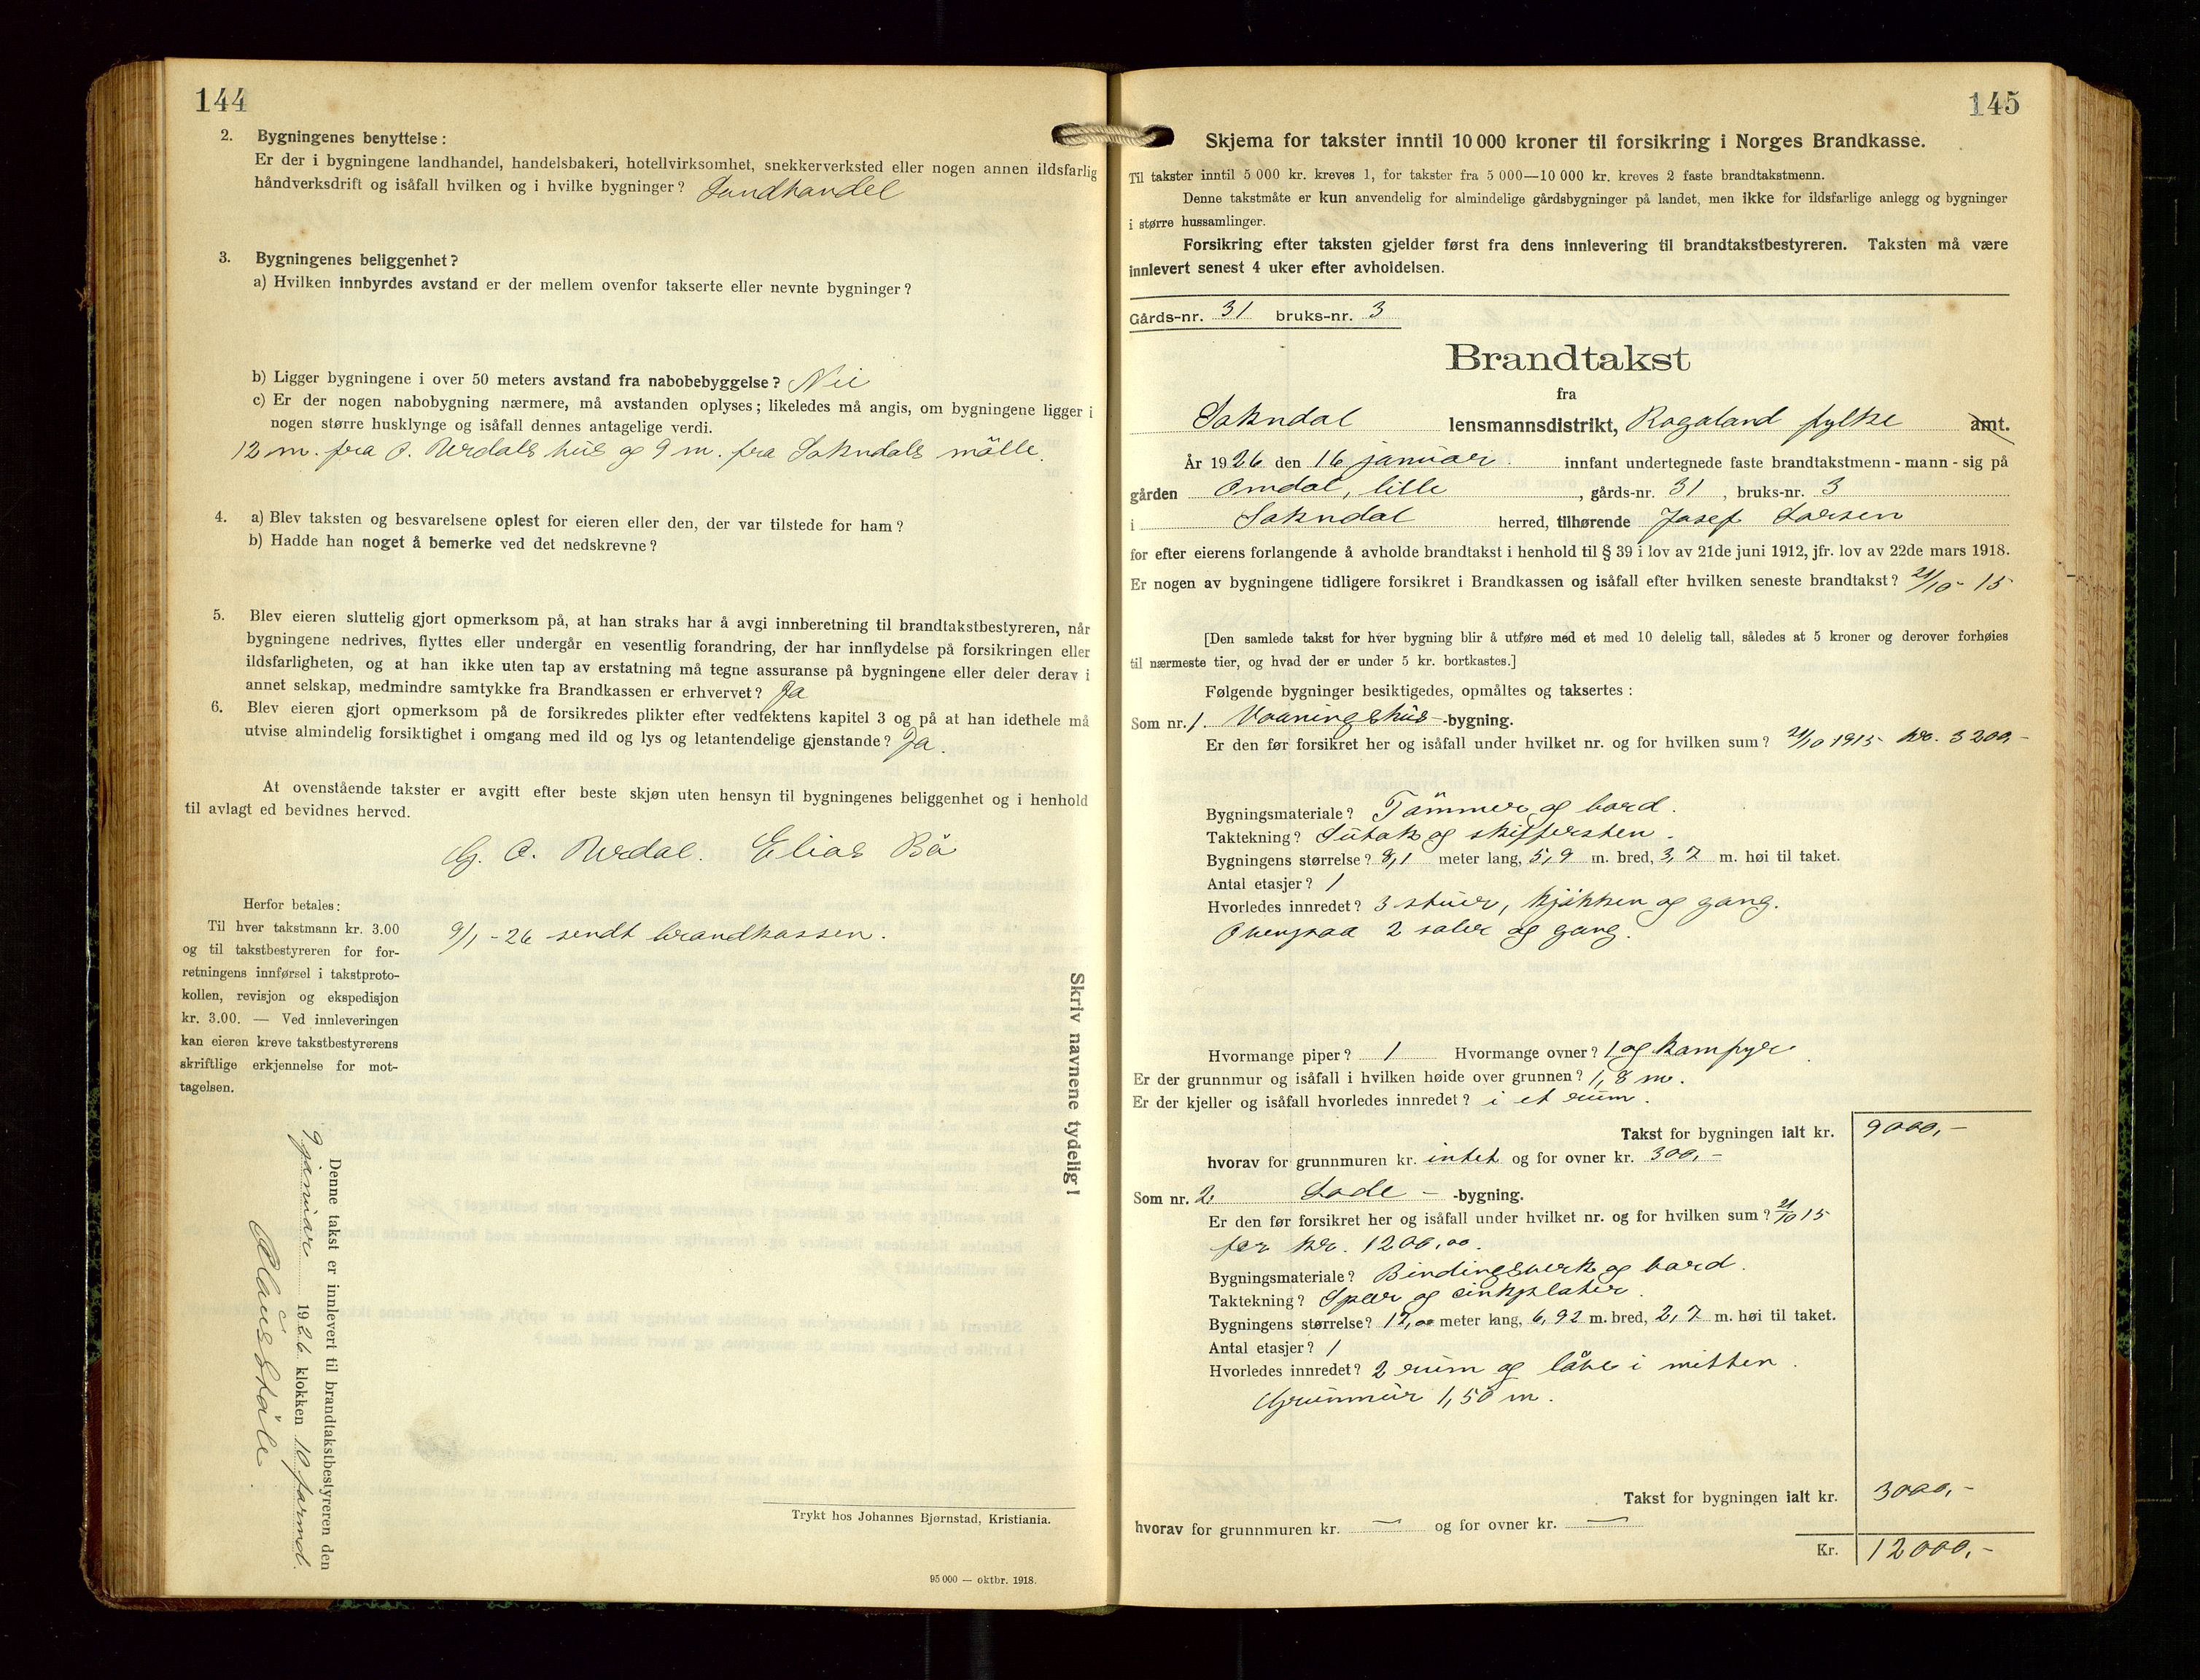 144
2. Bygningenes benyttelse:
Er der i bygningene landhandel, handelsbakeri, hotellvirksomhet, snekkerverksted eller nogen annen ildsfarlig
håndverksdrift og isåfall hvilken og i hvilke bygninger? Landhandel
3. Bygningenes beliggenhet?
a) Hvilken innbyrdes avstand er der mellem ovenfor takserte eller nevnte bygninger?
b) Ligger bygningene i over 50 meters avstand fra nabobebyggelse? Nei
c) Er der nogen nabobygning nærmere, må avstanden oplyses; likeledes må angis, om bygningene ligger i
nogen større husklynge og isåfall dennes antagelige verdi.
12 m. fra O. Urdals hus og 9 m. fra Sokndals mölle.
4. a) Blev taksten og besvarelsene oplest for eieren eller den, der var tilstede for ham?
b) Hadde han noget å bemerke ved det nedskrevne?
5. Blev eieren sluttelig gjort opmerksom på, at han straks har å avgi innberetning til brandtakstbestyreren, når
bygningene nedrives, flyttes eller undergår en vesentlig forandring, der har innflydelse på forsikringen eller
ildsfarligheten, og at han ikke uten tap av erstatning må tegne assuranse på bygningene eller deler derav i
annet selskap, medmindre samtykke fra Brandkassen er erhvervet? Ja
6. Blev eieren gjort opmerksom på de forsikredes plikter efter vedtektens kapitel 3 og på at han idethele må
utvise almindelig forsiktighet i omgang med ild og lys og letantendelige gjenstande? Ja.
At ovenstående takster er avgitt efter beste skjøn uten hensyn til bygningenes beliggenhet og i henhold
til avlagt ed bevidnes herved.
G. O. Urdal. Elias Bö
Herfor betales:
Til hver takstmann kr. 3.00
og til takstbestyreren for for-
retningens innførsel i takstproto-
kollen, revisjon og ekspedisjon
kr. 3.00. — Ved innleveringen
kan eieren kreve takstbestyrerens
skriftlige erkjennelse for mot-
tagelsen.
9/1 - 26 sendt brandkassen.
Skriv navnene tydelig!
Denne takst er innlevert til brandtakstbestyreren den
9 januar 1926 klokken 10 formd.
Olaus Ståle
Trykt hos Johannes Bjørnstad, Kristiania.
95 000 — oktbr. 1918.
145
Skjema for takster inntil 10 000 kroner til forsikring i Norges Brandkasse.
Til takster inntil 5 000 kr. kreves 1, for takster fra 5 000—10 000 kr. kreves 2 faste brandtakstmenn.
Denne takstmåte er kun anvendelig for almindelige gårdsbygninger på landet, men ikke for ildsfarlige anlegg og bygninger
i større hussamlinger.
Forsikring efter taksten gjelder først fra dens innlevering til brandtakstbestyreren. Taksten må være
innlevert senest 4 uker efter avholdelsen.
Gårds-nr. 31 bruks-nr. 3
Brandtakst
fra
Sokndal lensmannsdistrikt, Rogaland fylke amt.
År 1926 den 16 januar. innfant undertegnede faste brandtakstmenn - mann - sig på
gården Omdal, lille, gårds-nr. 31, bruks-nr. 3
i Sokndal herred, tilhørende Josef Larsen
for efter eierens forlangende å avholde brandtakst i henhold til § 39 i lov av 21de juni 1912, jfr. lov av 22de mars 1918.
Er nogen av bygningene tidligere forsikret i Brandkassen og isåfall efter hvilken seneste brandtakst? 21/10 - 15
[Den samlede takst for hver bygning blir å utføre med et med 10 delelig tall, således at 5 kroner og derover forhøies
til nærmeste tier, og hvad der er under 5 kr. bortkastes.]
Følgende bygninger besiktigedes, opmåltes og taksertes:
Som nr. 1. Vaaningshus -bygning.
Er den før forsikret her og isåfall under hvilket nr. og for hvilken sum? 21/10 1915 kr. 3200,-
Bygningsmateriale? Tömmer og bord.
Taktekning? Sutak og skiffersten.
Bygningens størrelse? 8,1 meter lang, 5,9 m. bred, 3,7 m. høi til taket.
Antal etasjer? 1
Hvorledes innredet? 3 stuer, kjökken og gang.
Ovenpaa 2 saler og gang.
Hvormange piper? 1 Hvormange ovner? 1 og komfyr.
Er der grunnmur og isåfall i hvilken høide over grunnen? 1,8 m.
Er der kjeller og isåfall hvorledes innredet? i et rum.
Takst for bygningen ialt kr. 9000,-
hvorav for grunnmuren kr. intet og for ovner kr. 300,-
Som nr. 2 Lade - -bygning.
Er den før forsikret her og isåfall under hvilket nr. og for hvilken sum? 21/10 15
for kr. 1200,00.
Bygningsmateriale? Bindingsverk og bord.
Taktekning? Spær og sinkplater.
Bygningens størrelse? 12,00 meter lang, 6,92 m. bred, 2,7 m. høi til taket.
Antal etasjer? 1
Hvorledes innredet? 2 rum og låve i mitten.
Grunmur 1,50 m.
Takst for bygningen ialt kr. 3000,-
hvorav for grunnmuren kr. — og for ovner kr. —
Kr. 12000,-